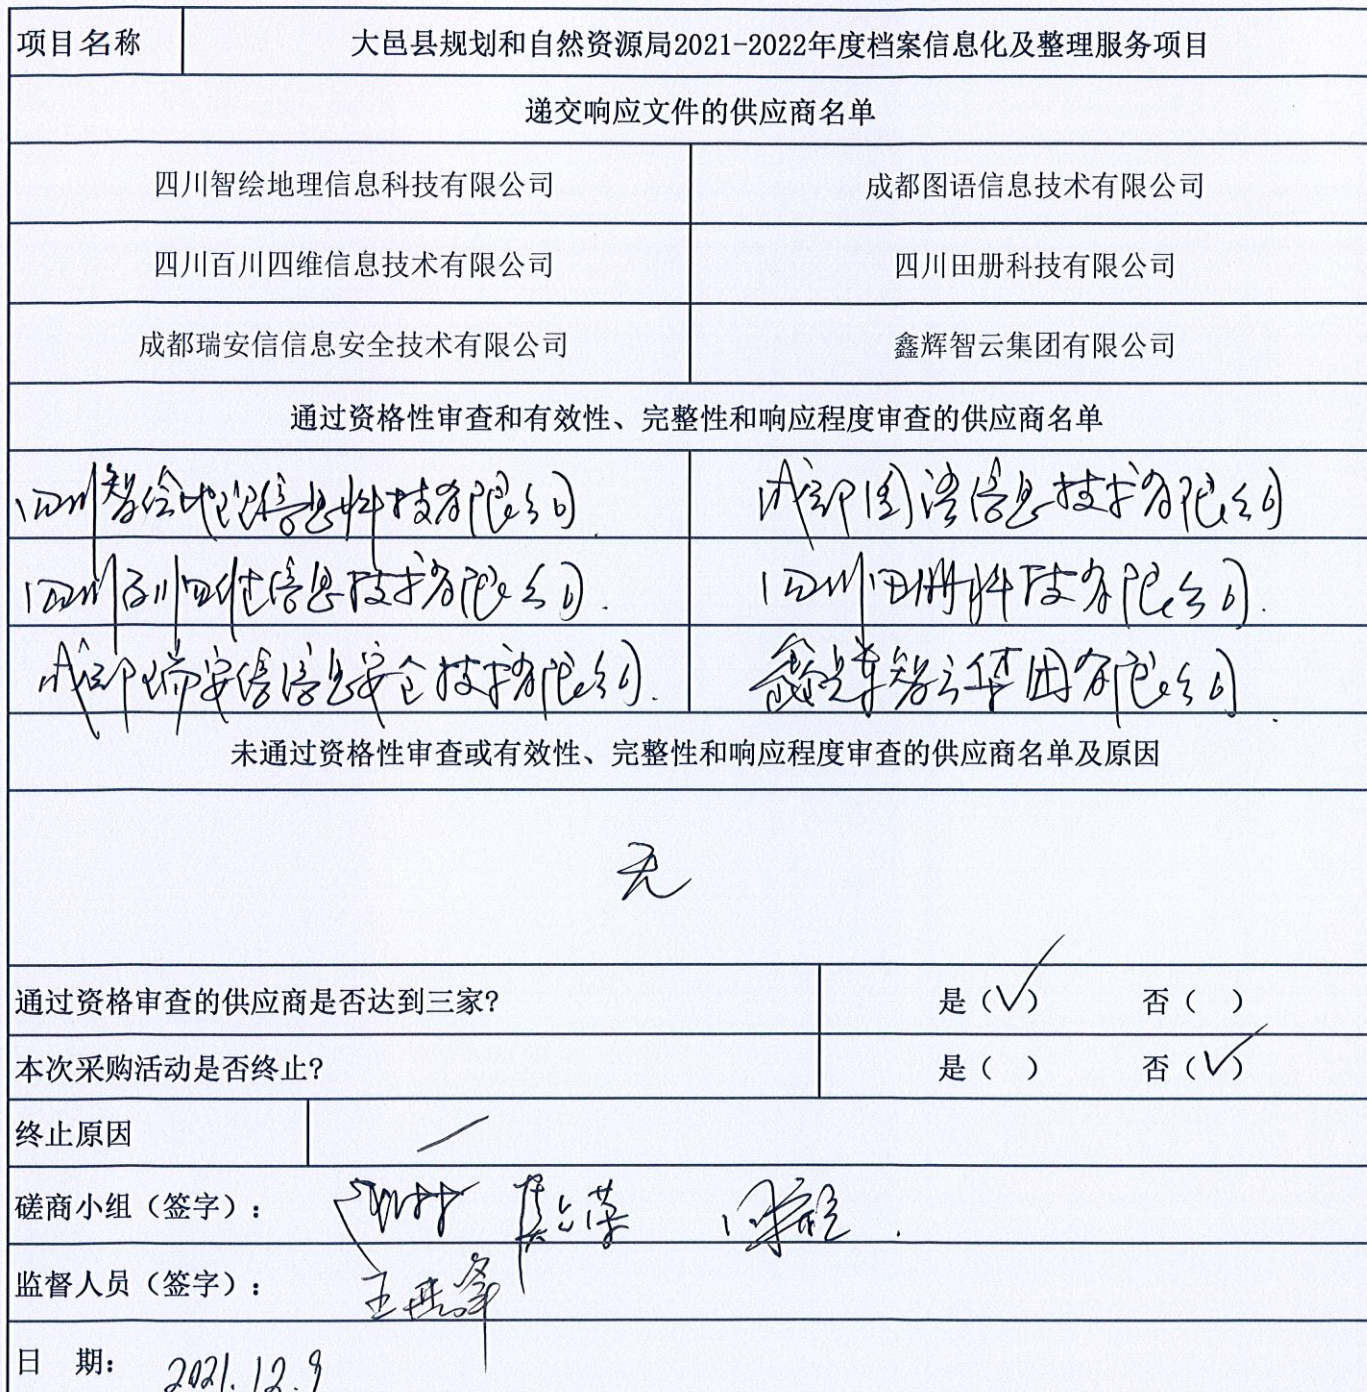 项目名称 大邑县规划和自然资源局2021-2022年度档案信息化及整理服务项目
递交响应文件的供应商名单
四川智绘地理信息科技有限公司 成都图语信息技术有限公司
四川百川四维信息技术有限公司 四川田册科技有限公司
成都瑞安信信息安全技术有限公司 鑫辉智云集团有限公司
通过资格性审查和有效性、完整性和响应程度审查的供应商名单
四川智绘地理信息科技有限公司. 成都图语信息技术有限公司
四川百川四维信息技术有限公司. 四川田册科技有限公司.
成都瑞安信信息安全技术有限公司. 鑫辉智云集团有限公司.
未通过资格性审查或有效性、完整性和响应程度审查的供应商名单及原因
无
通过资格审查的供应商是否达到三家? 是（√） 否（ ）
本次采购活动是否终止? 是（ ） 否（√）
终止原因 /
磋商小组（签字）：
监督人员（签字）：
日 期: 2021.12.9